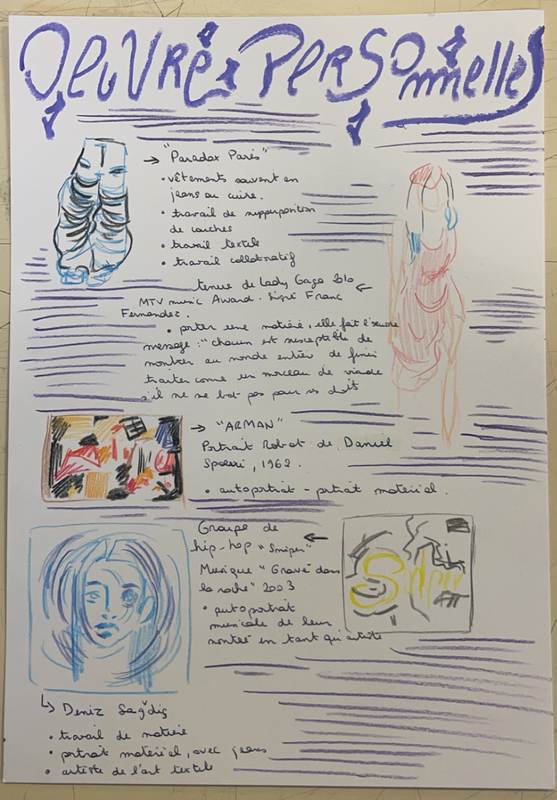 OEUVRE PERSOnnelles
→ "Paradox Paris"
• vêtements souvent en
jeans ou cuire.
• travail de supperposition
de couches
• travail textile
• travail collaboratif
tenue de Lady Gaga 2010 ←
MTV music Award. Signé Franc
Fernandez.
• porter une matière, elle fait
message : "chacun est susceptible de
montrer au monde entier de finir
traiter come un morceau de viande
s'il ne se bat pas pour ss doit
→ "ARMAN"
Portrait Robot de Daniel
Spoerri, 1962.
• autoportrait - portrait matériel.
Groupe de ←
hip-hop "Sniper"
Musique "Gravé dans
la roche" 2003
• autoportrait
musicale de leur
montée en tant qu'artiste
Sniper
↳ Deniz Sağdıç
• travail de matière
• portrait matériel, avec jeans
• artiste de l'art textile